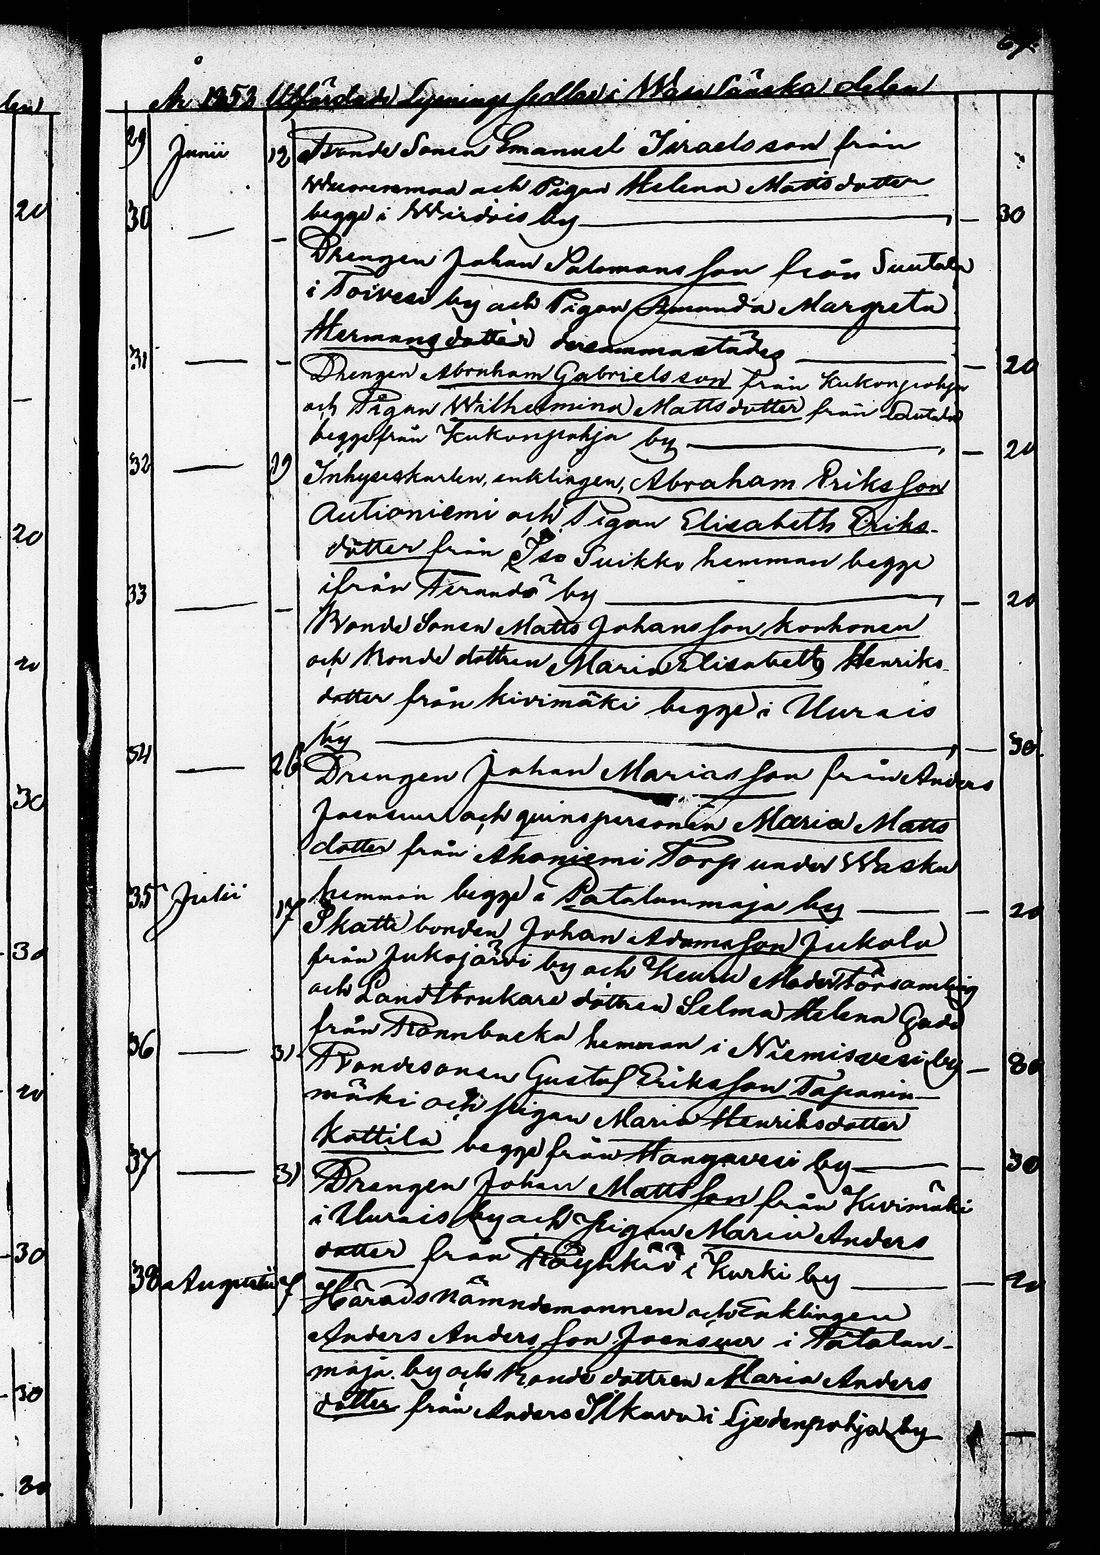 67.
År 1853 Utfärdade Lysnings sedlar i Wasa Länska delen
29 Junii 12 Bonde Sonen Emanuel Israelsson från
Wuorenmaa och Pigan Helena Mattsdotter
30 begge i Wirdois by — 30
— — Drengen Johan Salomonsson från Suutala
i Toivesi by och Pigan Amanda Margreta
Hermansdotter dersammastädes
31 — — 20
Drengen Abraham Gabrielsson från Kukonpohja
och Pigan Wilhelmina Mattsdotter från
begge från Kukonpohja by — 20
32 — 19 Inhyseskarlen, enklingen, Abraham Eriksson
Autioniemi och Pigan Elisabeth Eriks-
dotter från Iso Suikko hemman begge
ifrån by — 20
33 — — Bonde Sonen Matts Johansson Korhonen
och Bonde dottren Maria Elisabeth Henriks-
dotter från Kivimäki begge i Uurais
by — 30
34 — 26 Drengen Johan Mariasson från Anders
Joensuu och qvinspersonen Maria Matts
dotter från Ahoniemi Torp under Waska
hemman begge i Patalanmaja by — 20
35 Julii 17 Skatte bonden Johan Adamsson Jukola
från Jukojärvi by och Keuru Moderförsamling
och Landtbrukare dottren Selma Helena Gadd
från Rannbacka hemman i Niemisvesi by — 80
36 — 31 Bondesonen Gustaf Eriksson Tapanin-
mäki och pigan Maria Henriksdotter
Kottila begge från Hangavesi by — 30
37 — 31 Drengen Johan Mattsson från Kivimäki
i Uurais by och pigan Maria Anders
dotter från Röyhkiö i Kurki by — 20
38 Augustii 7 Härads Nämndemannen och Enklingen
Anders Andersson Joensuu i Patalan-
maja by och Bonde dottren Maria Anders
dotter från Anders i Sjædenpohja by —
20
20
20
30
30
20
30
30
30